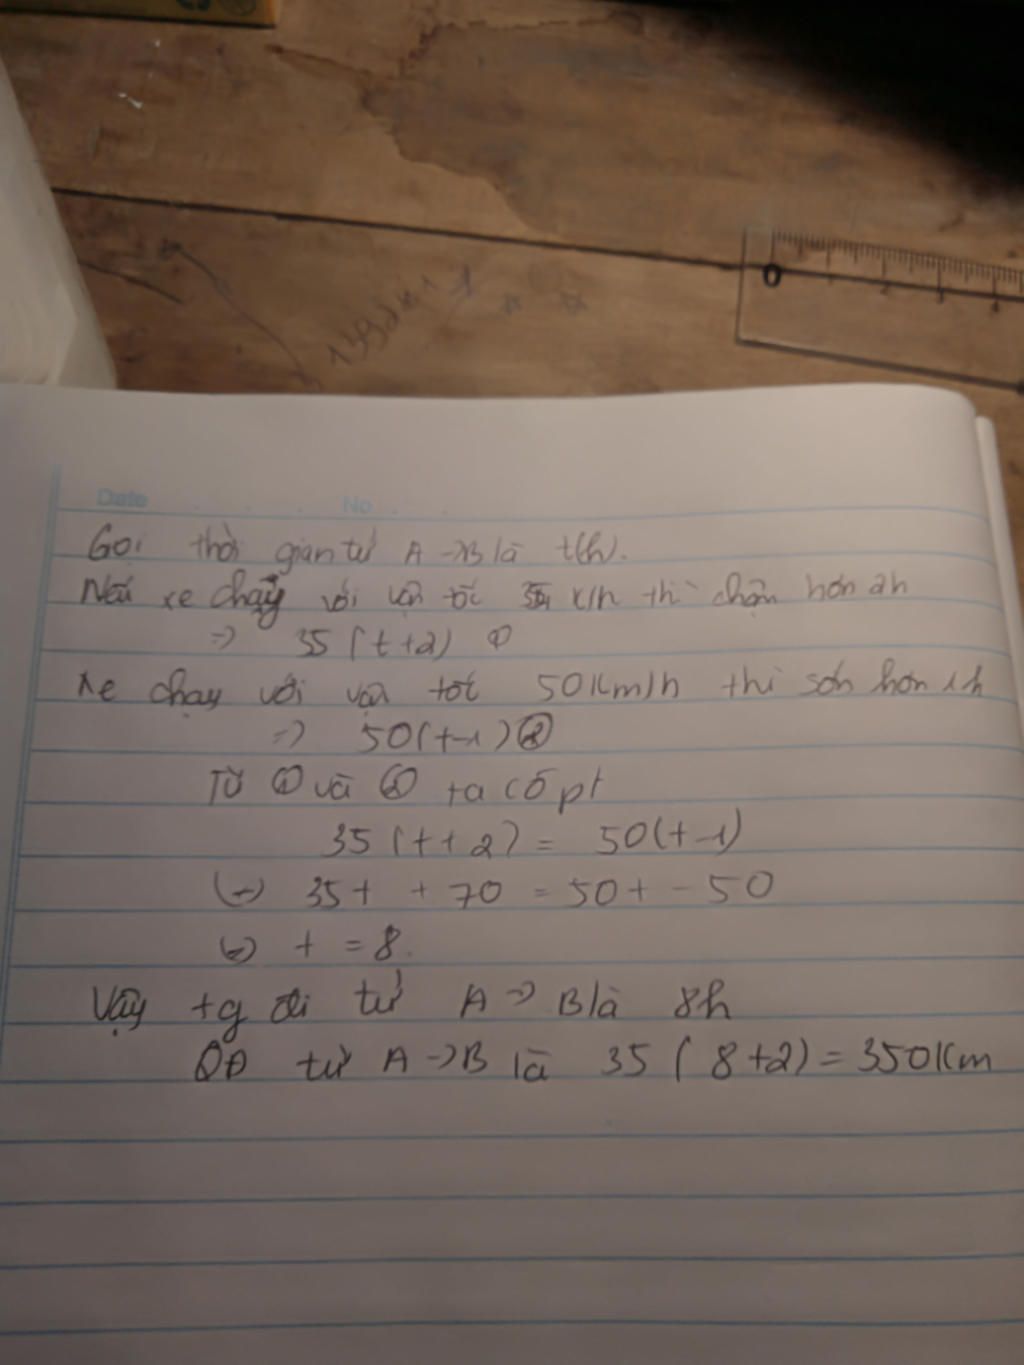 0
1 2 3 4
Date No
Gọi thời gian từ A → B là t(h).
Nếu xe chạy với vận tốc 35 k/h thì chậm hơn 2h
=> 35 (t+2) ①
xe chạy với vận tốc 50Km/h thì sớm hơn 1h
=> 50(t-1) ②
Từ ① và ② ta có pt
35 (t+2) = 50(t-1)
<=> 35t + 70 = 50t - 50
<=> t = 8.
Vậy tg đi từ A => B là 8h
QĐ từ A → B là 35 ( 8+2) = 350Km